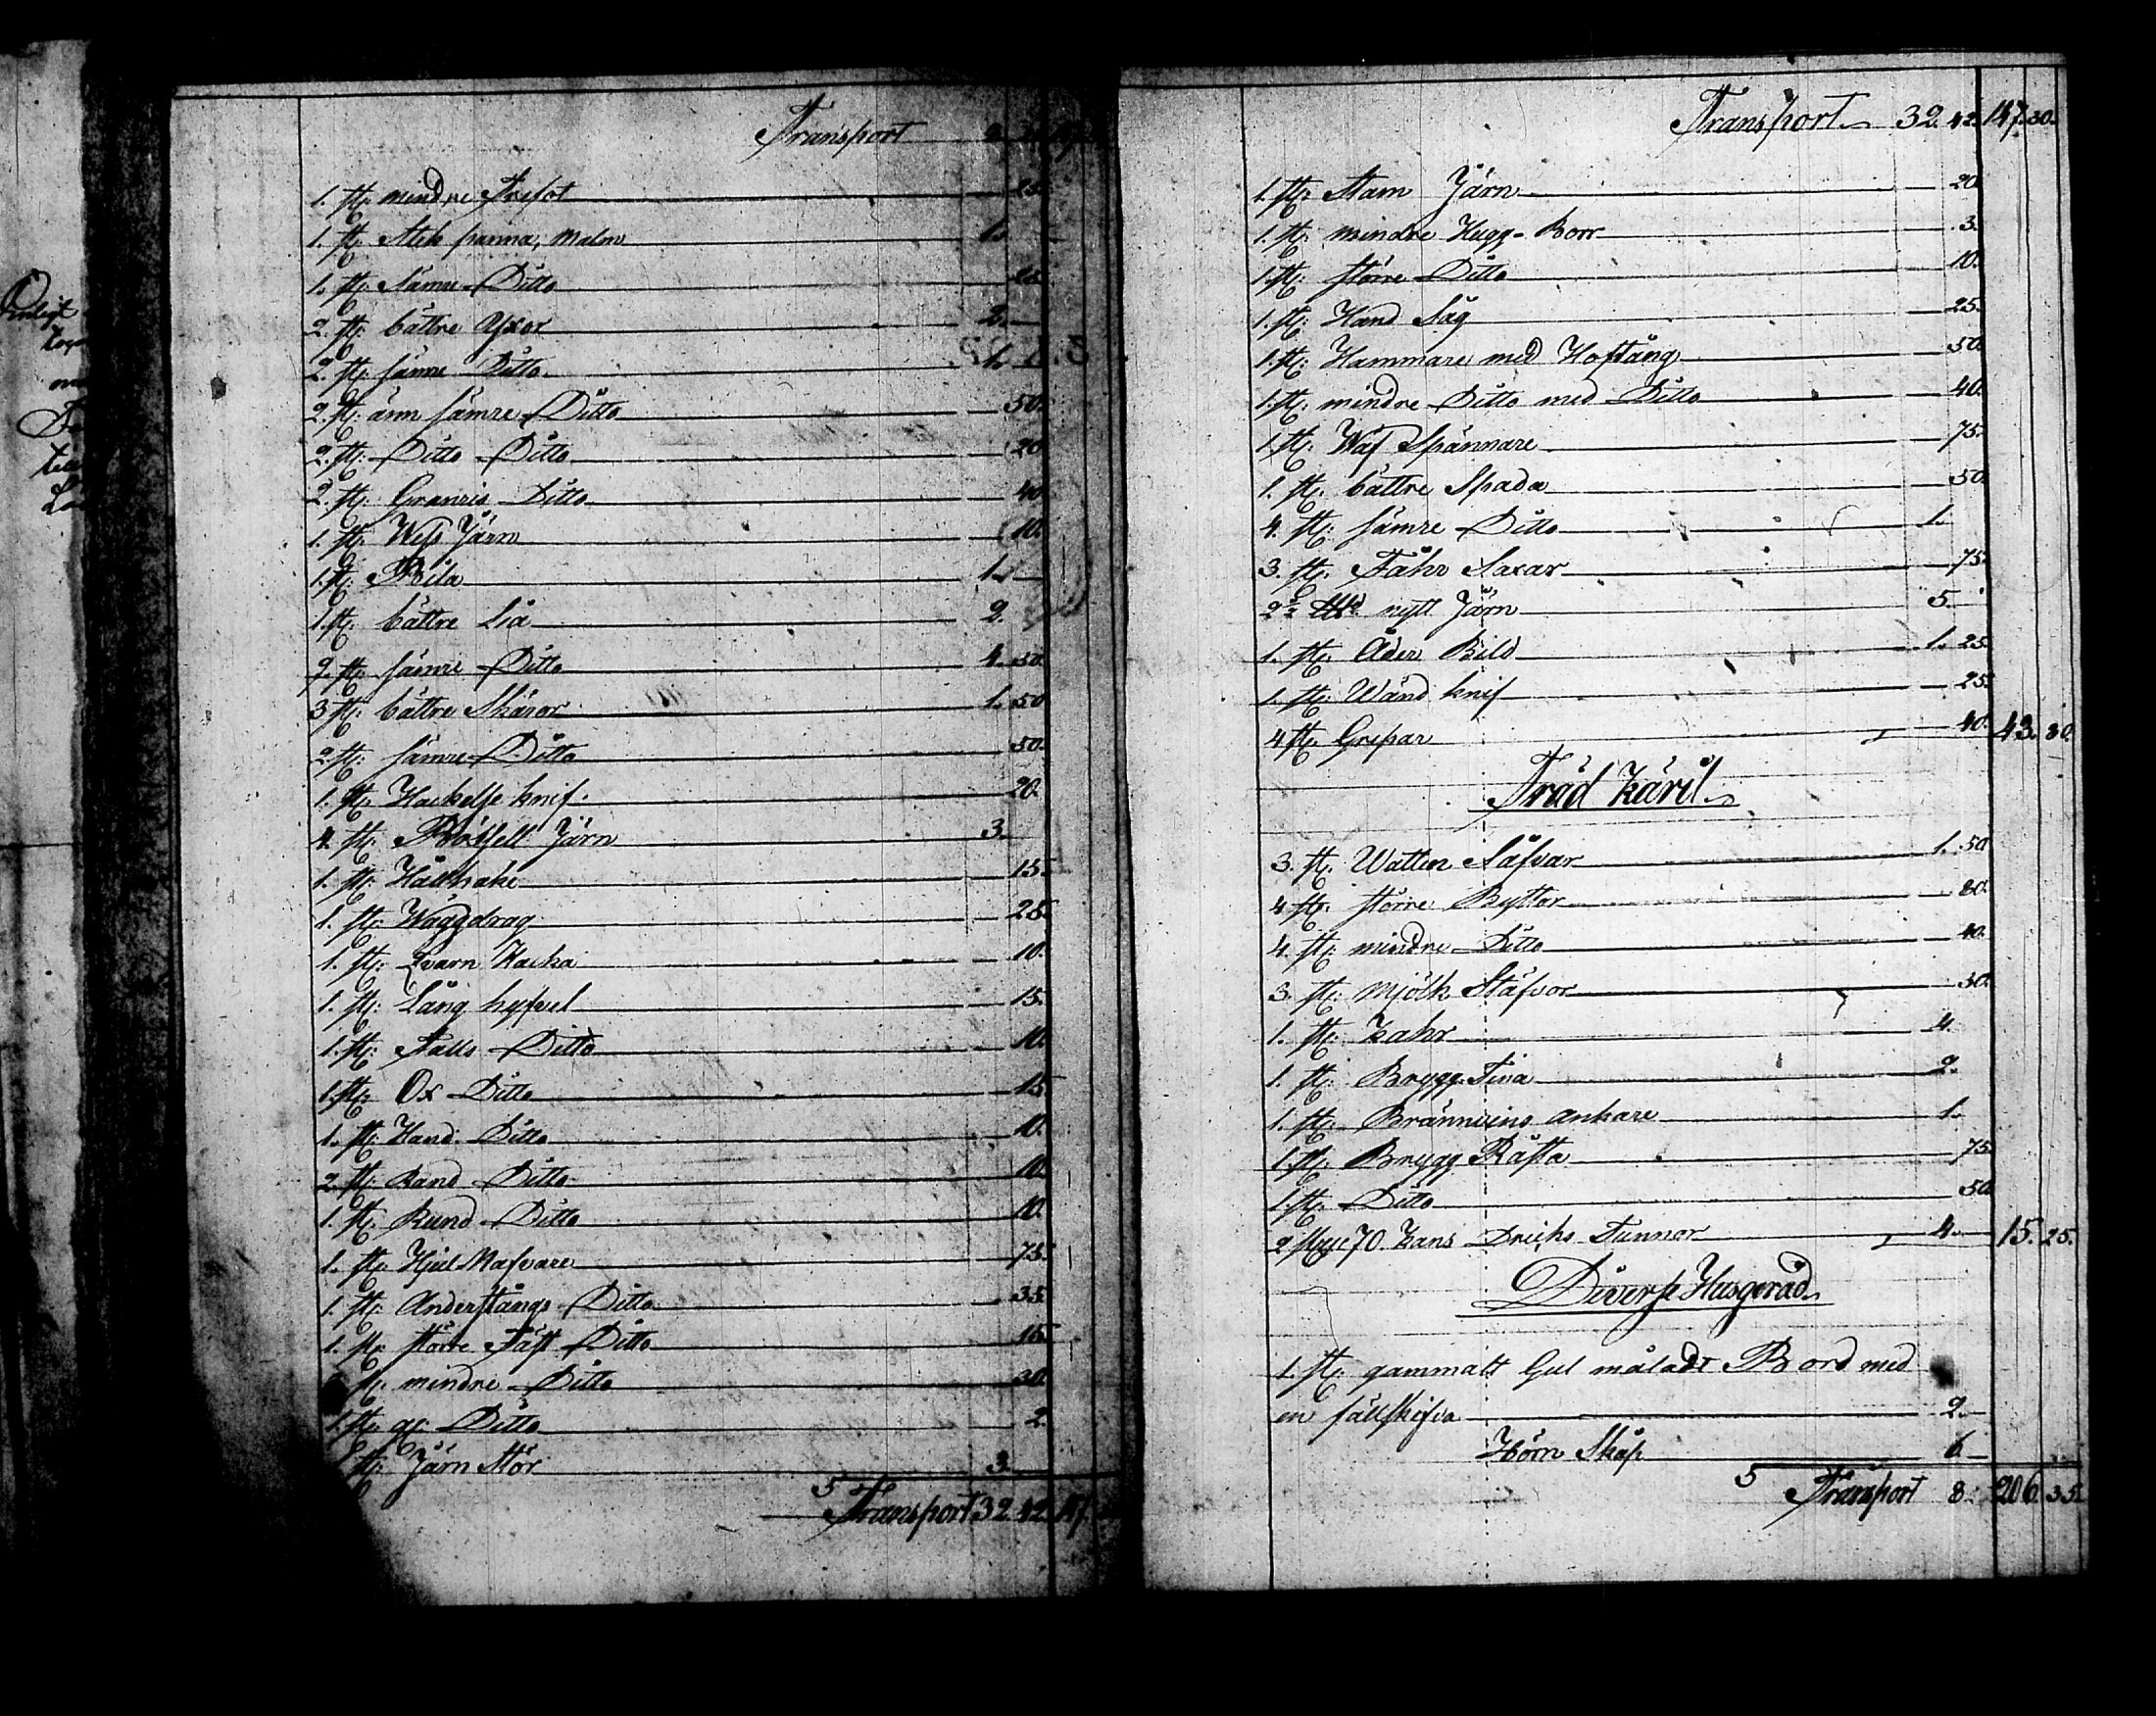 Transport
1. st: mindre Trefot 25.
1. st: Stek panna, malm 1.
1. st: Sämre Ditto 25.
2. st: bättre Yxor 2.
2. st: sämre Ditto 1.
2. st: änn sämre Ditto 50.
2. st: Ditto Ditto 20
2. st: Granris Ditto 40
1. st: Järn 10.
1. st: Bila 1.
1. st: bättre Lia 2.
9. st: sämre Ditto 4. 50.
3 st: bättre Skäror 1. 50
2 st: sämre Ditto 50.
1. st: Hackelse knif. 20.
4. st: Järn 3.
1. st: Hålhake 15.
1. st: Wäggdrag 25.
1. st: Qvarn Hacka 10.
1. st: Lång hyfvel 15.
1. st: Falls Ditto 10.
1. st: Ox Ditto 15
1. st: Hand Ditto 10.
2 st: Rand Ditto 10.
1. st: Rund Ditto 10.
1. st: Hjul Nafvare 75.
1. st: Anderstångs Ditto 35.
1. st: större Fäst Ditto 15
st: mindre Ditto 30.
1. st: Ditto 2.
st: Järn Stör 3.
5 Transport 32. 42. 147.
Transport 32. 42. 147. 30.
1. st: Stam Järn 20.
1. st: mindre Hugg-Borr 3.
1. st: större Ditto 10.
1. st: Hand Såg 25.
1. st: Hammare med Hoftång 50.
1. st: mindre Ditto med Ditto 40.
1. st: Wäf Spännare 75.
1. st: bättre Spada 50.
4. st: sämre Ditto 1.
3. st: Fåhr Saxar 75.
nytt Järn 5.
1. st: Åder Bild 1. 25.
1. st: Wänd knif 25.
4 st: Grepar 40. 43. 80.
Träd Käril
3. st: Watten Såfvar 1. 50
4 st: större Byttor 80.
4. st: mindre Ditto 40.
3. st: Mjölk Stäfvor 30.
1. st: Kahr 4.
1. st: Brygg Tina 2.
1. st: Brännvins ankare 1.
1. st: Brygg Råsta 75.
1. st: Ditto 50.
2 70 Kans Dricks Tunnor 4. 15. 25.
Diverse Husgeråd
1. st: gammalt Gul måladt Bord med
en fällskifva 2.
Hörn Skåp 6
5 Transport 8. 206. 35.